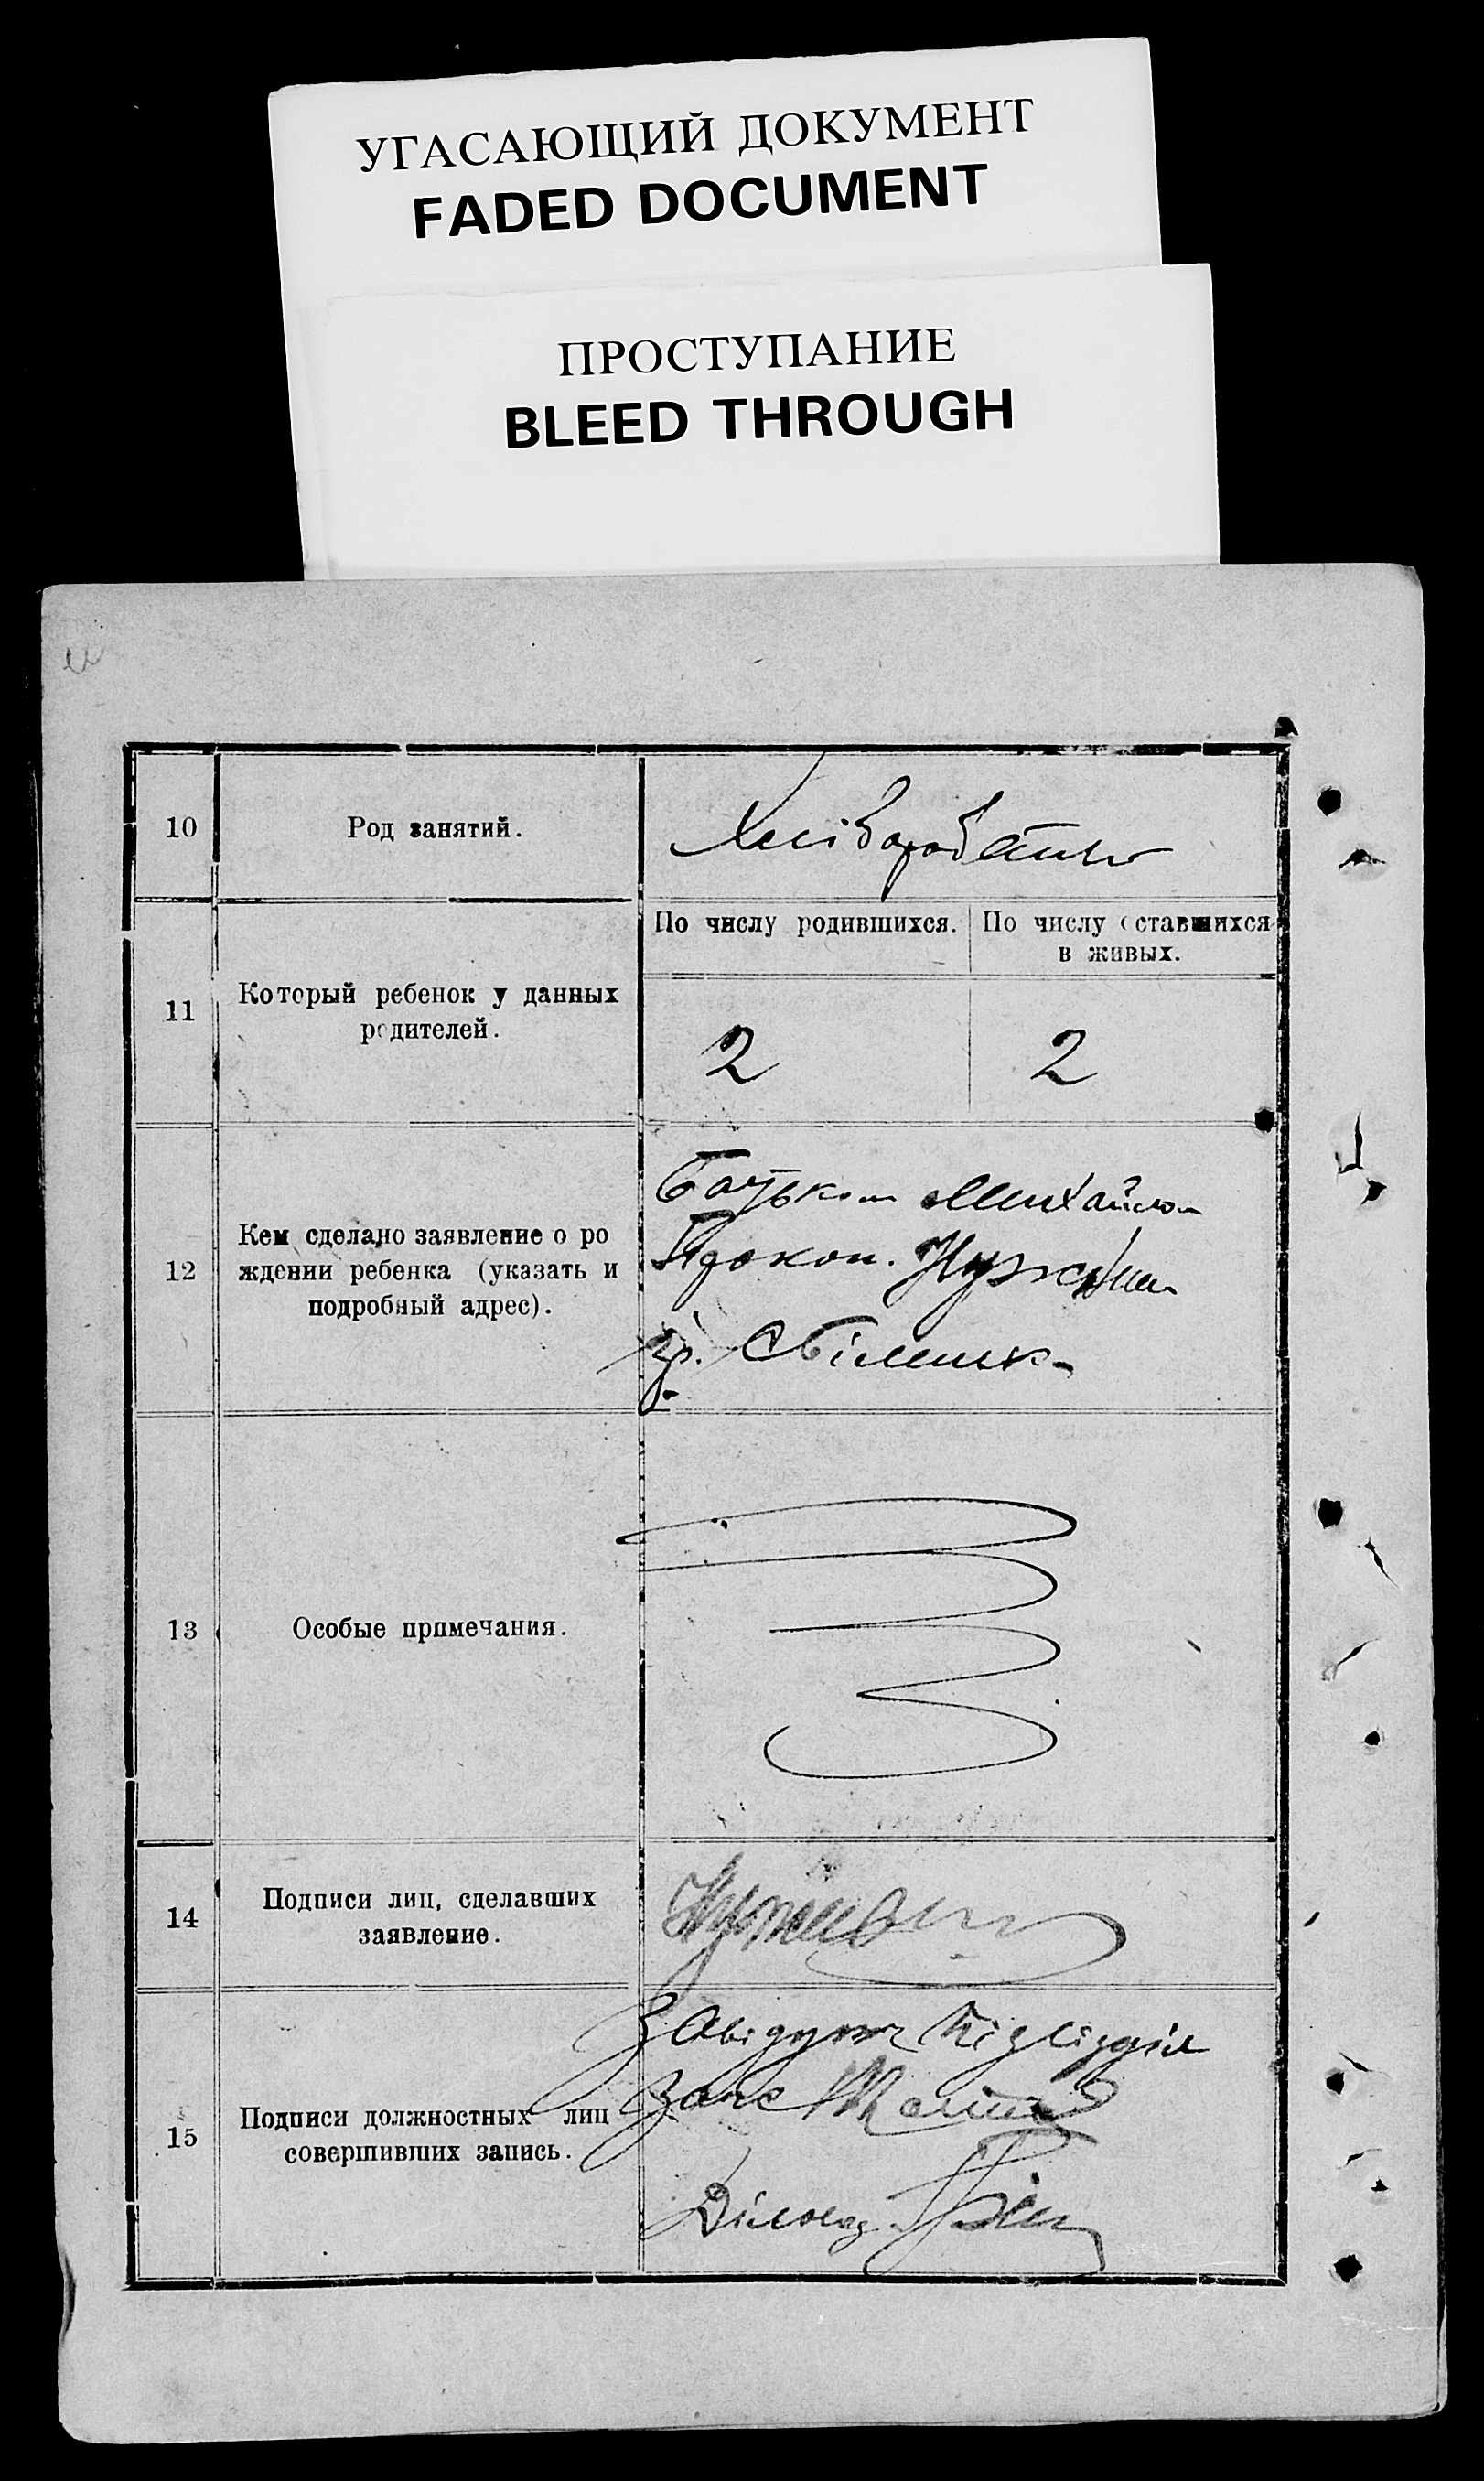 УГАСАЮЩИЙ ДОКУМЕНТ
FADED DOCUMENT
ПРОСТУПАНИЕ
BLEED THROUGH
10
Род занятий.
Хліборобство
11
Который ребенок у данных
родителей.
По числу родившихся.
По числу оставшихся
в живых.
2
2
12
Кем сделано заявление о ро
ждении ребенка (указать и
подробный адрес).
Батьком Михайлом
гр. с Білики
13
Особые примечания.
14
Подписи лиц, сделавших
заявление.
15
Подписи должностных лиц
совершивших запись.
Завідуюч Підвідділ
Загс
Діловод